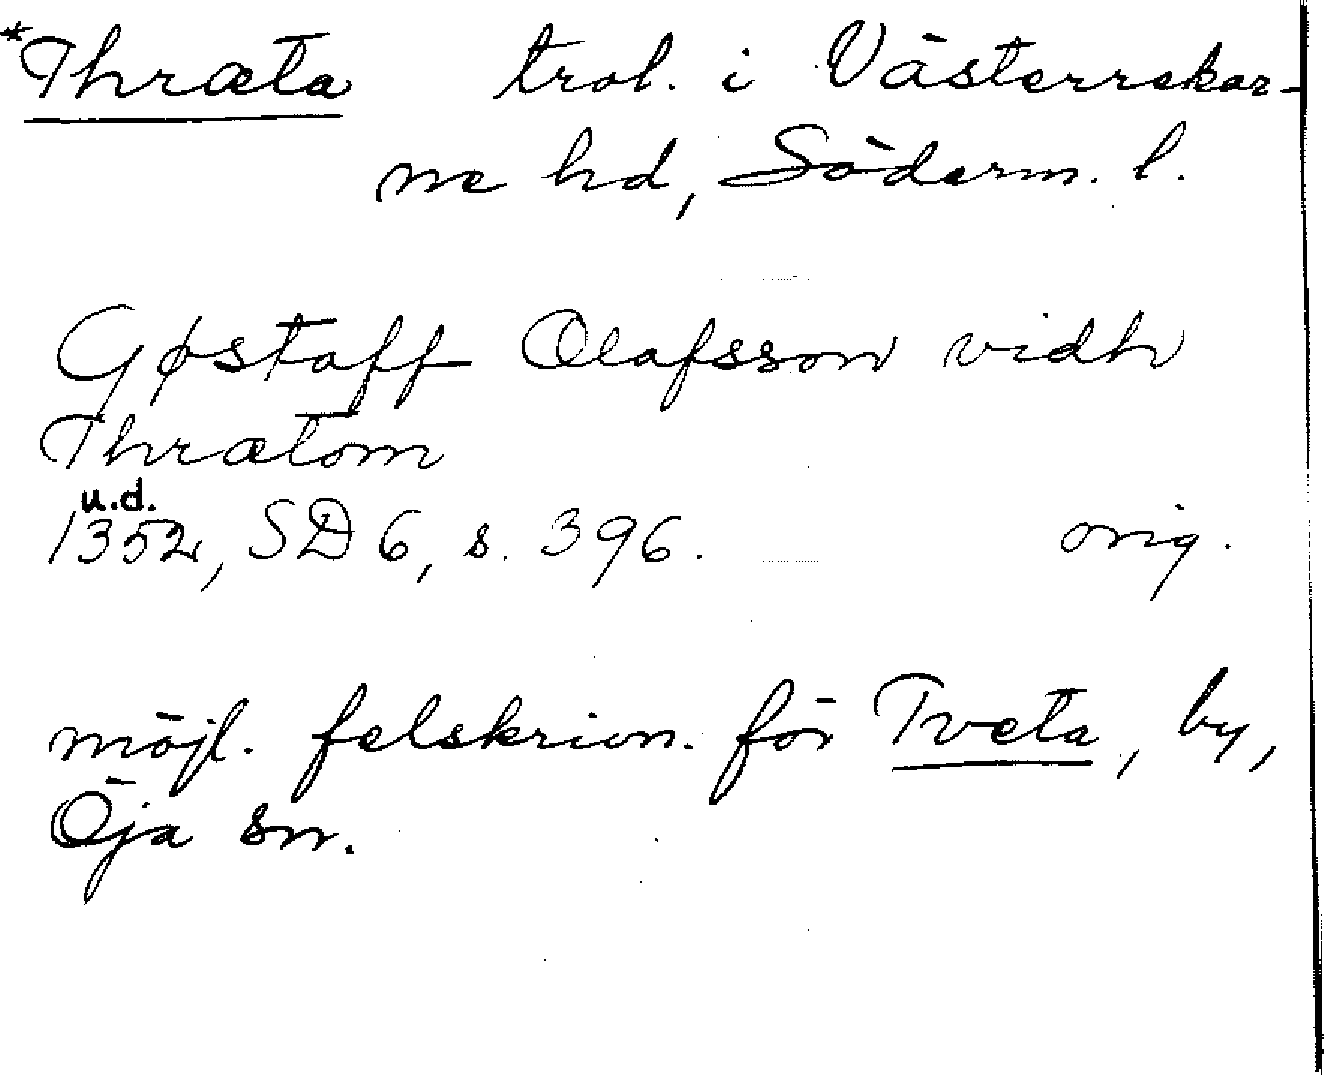 *Thræta trol. i Västerrekar-
ne hd, Söderm. l.
Gøstaff Olafsson vidh
Thrætom
u.d.
1352, SD 6, s. 396. orig.
möjl. felskrivn. för Tveta, by,
Öja sn.